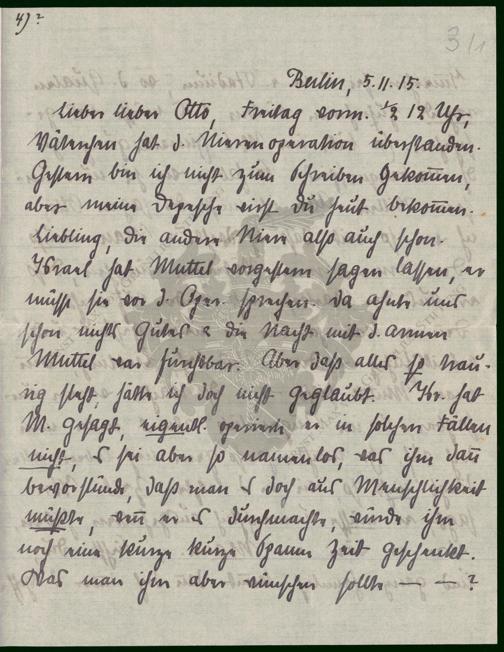 4)?
3/1
Berlin, 5.11.15.
Lieber lieber Otto, Freitag vorm. ½ 12 Uhr,
Väterchen hat d. Nierenoperation überstanden.
Gestern bin ich nicht zum Schreiben gekommen,
aber meine Depesche wirst du heut bekommen.
Liebling, die andere Niere also auch schon.
Israel hat Muttel vorgestern sagen lassen, er
müsse sie vor d. Oper. sprechen. Da ahnte uns
schon nichts Gutes & die Nacht mit d. armen
Muttel war furchtbar. Aber daß alles so trau-
rig steht, hätte ich doch nicht geglaubt. Isr. hat
M. gesagt, eigentl. operiert er in solchen Fällen
nicht, es sei aber so namenlos, was ihm dann
bevorstünde, daß man es doch aus Menschlichkeit
müßte, wenn er es durchmachte, würde ihm
noch eine kurze kurze Spanne Zeit geschenkt.
Was man ihm aber wünschen sollte — — ?